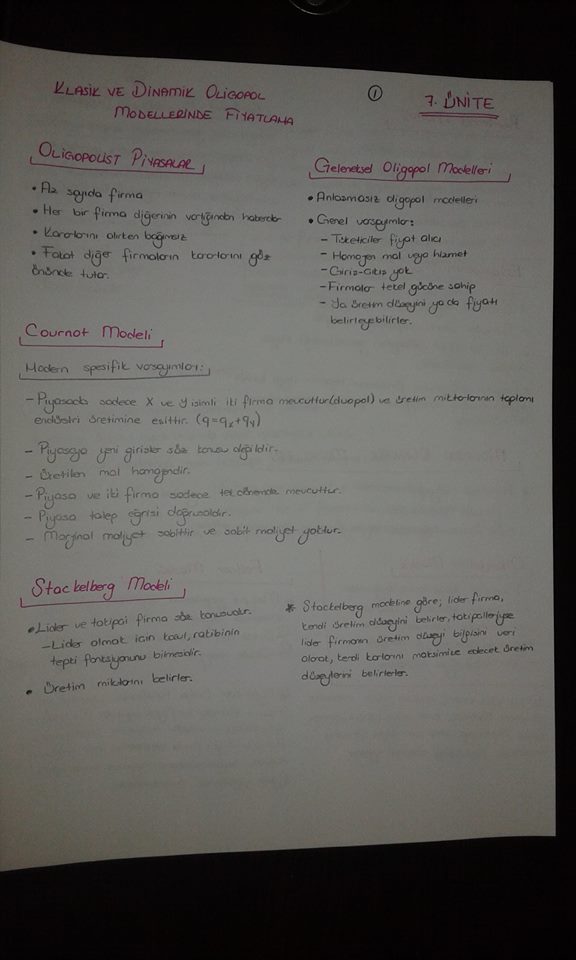 KLASİK VE DİNAMİK OLİGOPOL
MODELLERİNDE FİYATLAMA
1
7. ÜNİTE
OLİGOPOLİST PİYASALAR
• Az sayıda firma
• Her bir firma diğerinin varlığından haberdar
• Kararlarını alırken bağımsız
• Fakat diğer firmaların kararlarını göz
önünde tutar.
Geleneksel Oligopol Modelleri
• Anlaşmasız oligopol modelleri
• Genel varsayımlar:
- Tüketiciler fiyat alıcı
- Homojen mal veya hizmet
- Giriş-Çıkış yok
- Firmalar tekel gücüne sahip
- Ya üretim düzeyini ya da fiyatı
belirleyebilirler.
Cournot Modeli
Modern spesifik varsayımları:
- Piyasada sadece X ve Y isimli iki firma mevcuttur(duopol) ve üretim miktarlarının toplamı
endüstri üretimine eşittir. (q=qx+qy)
- Piyasaya yeni girişler söz konusu değildir.
- Üretilen mal homojendir.
- Piyasa ve iki firma sadece tek dönemde mevcuttur.
- Piyasa talep eğrisi doğrusaldır.
- Marjinal maliyet sabittir ve sabit maliyet yoktur.
Stackelberg Modeli
• Lider ve takipçi firma söz konusudur.
- Lider olmak için koşul, rakibinin
tepki fonksiyonunu bilmesidir.
• Üretim miktarını belirler.
* Stackelberg modeline göre; lider firma,
kendi üretim düzeyini belirler, takipçileriyse
lider firmanın üretim düzeyi bilgisini veri
olarak, kendi karlarını maksimize edecek üretim
düzeylerini belirlerler.